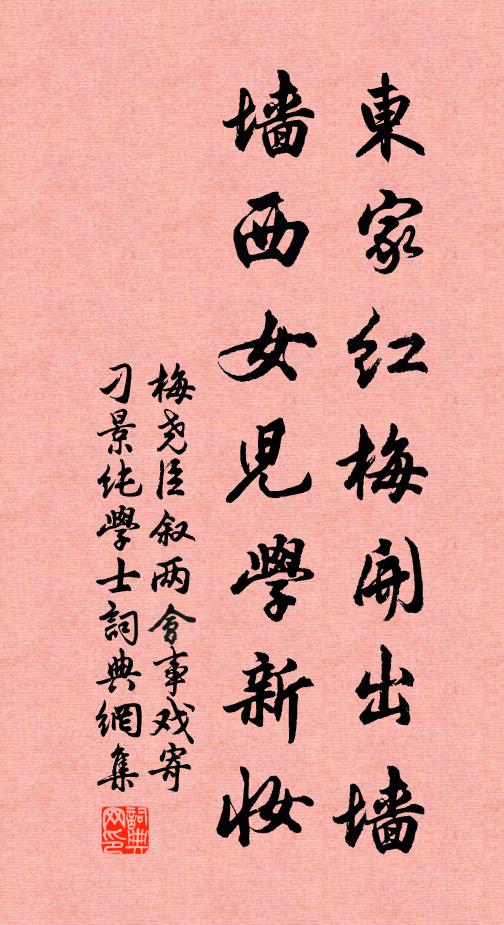 東家红梅開出墙
墙西女児學新妝
梅尧臣叙两會事戏寄
刁景纯學士詞典網集
詞典网印